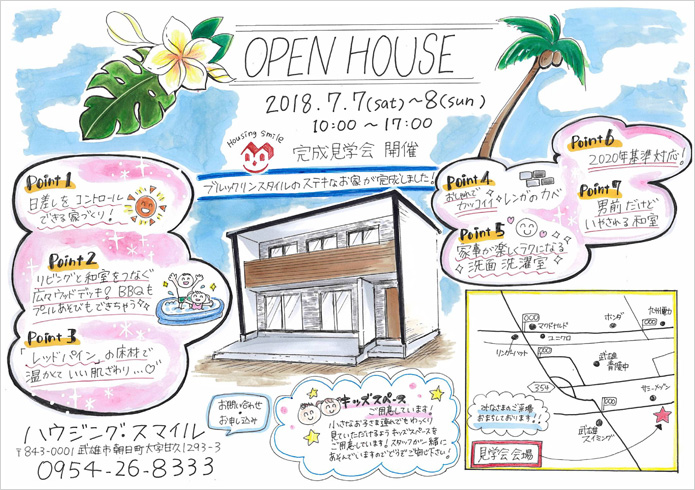 OPEN HOUSE
2018.7.7(sat)~8(sun)
10:00~17:00
Housing Smile
完成見学会 開催
ブルックリンスタイルのステキなお家が完成しました!
Point 1
日差しをコントロール
できる家づくり!
Point 2
リビングと和室をつなぐ
広々ウッドデッキ。BBQも
プールあそびもできちゃう
Point 3
「レッドパイン」の床材で
温かくていい肌ざわり...♡
Point 4
おしゃれで
カッコイイ レンガのカベ
Point 5
家事が楽しくラクになる
洗面洗濯室
Point 6
2020年基準対応!
Point 7
男前だけど
いやされる和室
ハウジング・スマイル
〒843-0001 武雄市朝日町大字甘久1293-3
0954-26-8333
お問い合わせ・
お申し込み
キッズスペース
ご用意しています!
小さなお子さま連れでもゆっくり
見ていただけるよう キッズスペースを
ご用意します!スタッフが一緒に
あそんでいますのでどうぞご安心下さい!
マクドナルド
ホンダ
九州電力
リンガーハット
ユニクロ
武雄
青陵中
354
セブンイレブン
武雄
スイミング
みなさまのご来場
お待ちしております!!
見学会会場